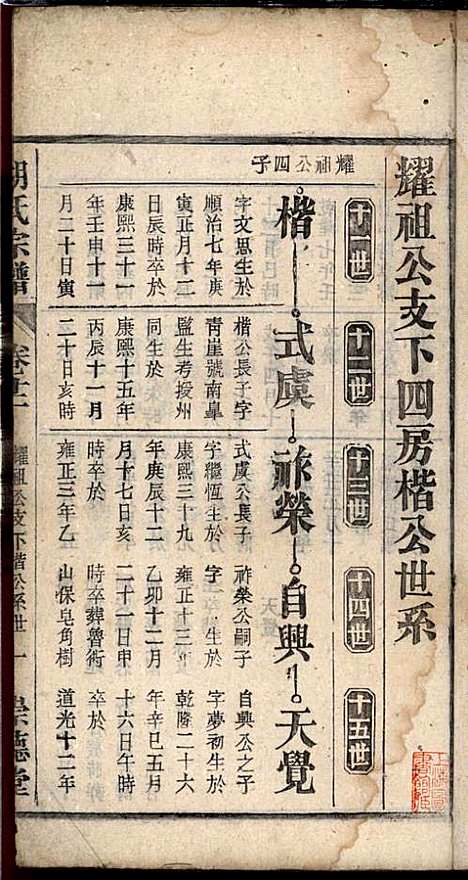 耀祖公支下四房楷公世系
十一世
十二世
十三世
十四世
十五世
耀祖公四子
楷
式虞
祚榮
自興
天覺
字文思生於
順治七年庚
寅正月十二
日辰時卒於
康熙三十一
年壬申十一
月二十日寅
楷公長子字
青崖號南臯
監生考授州
同生於
康熙十五年
丙辰十一月
二十日亥時
式虞公長子
字繼恆生於
康熙三十九
年庚辰十二
月十七日亥
時卒於
雍正三年乙
祚榮公嗣子
字 生於
雍正十三年
乙卯十二月
二十一日申
時卒葬魯術
山保皂角樹
自興公之子
字夢初生於
乾隆二十六
年辛巳五月
十六日午時
卒於
道光十二年
胡氏宗譜
卷十二
耀祖公支下楷公系世
一
崇德堂